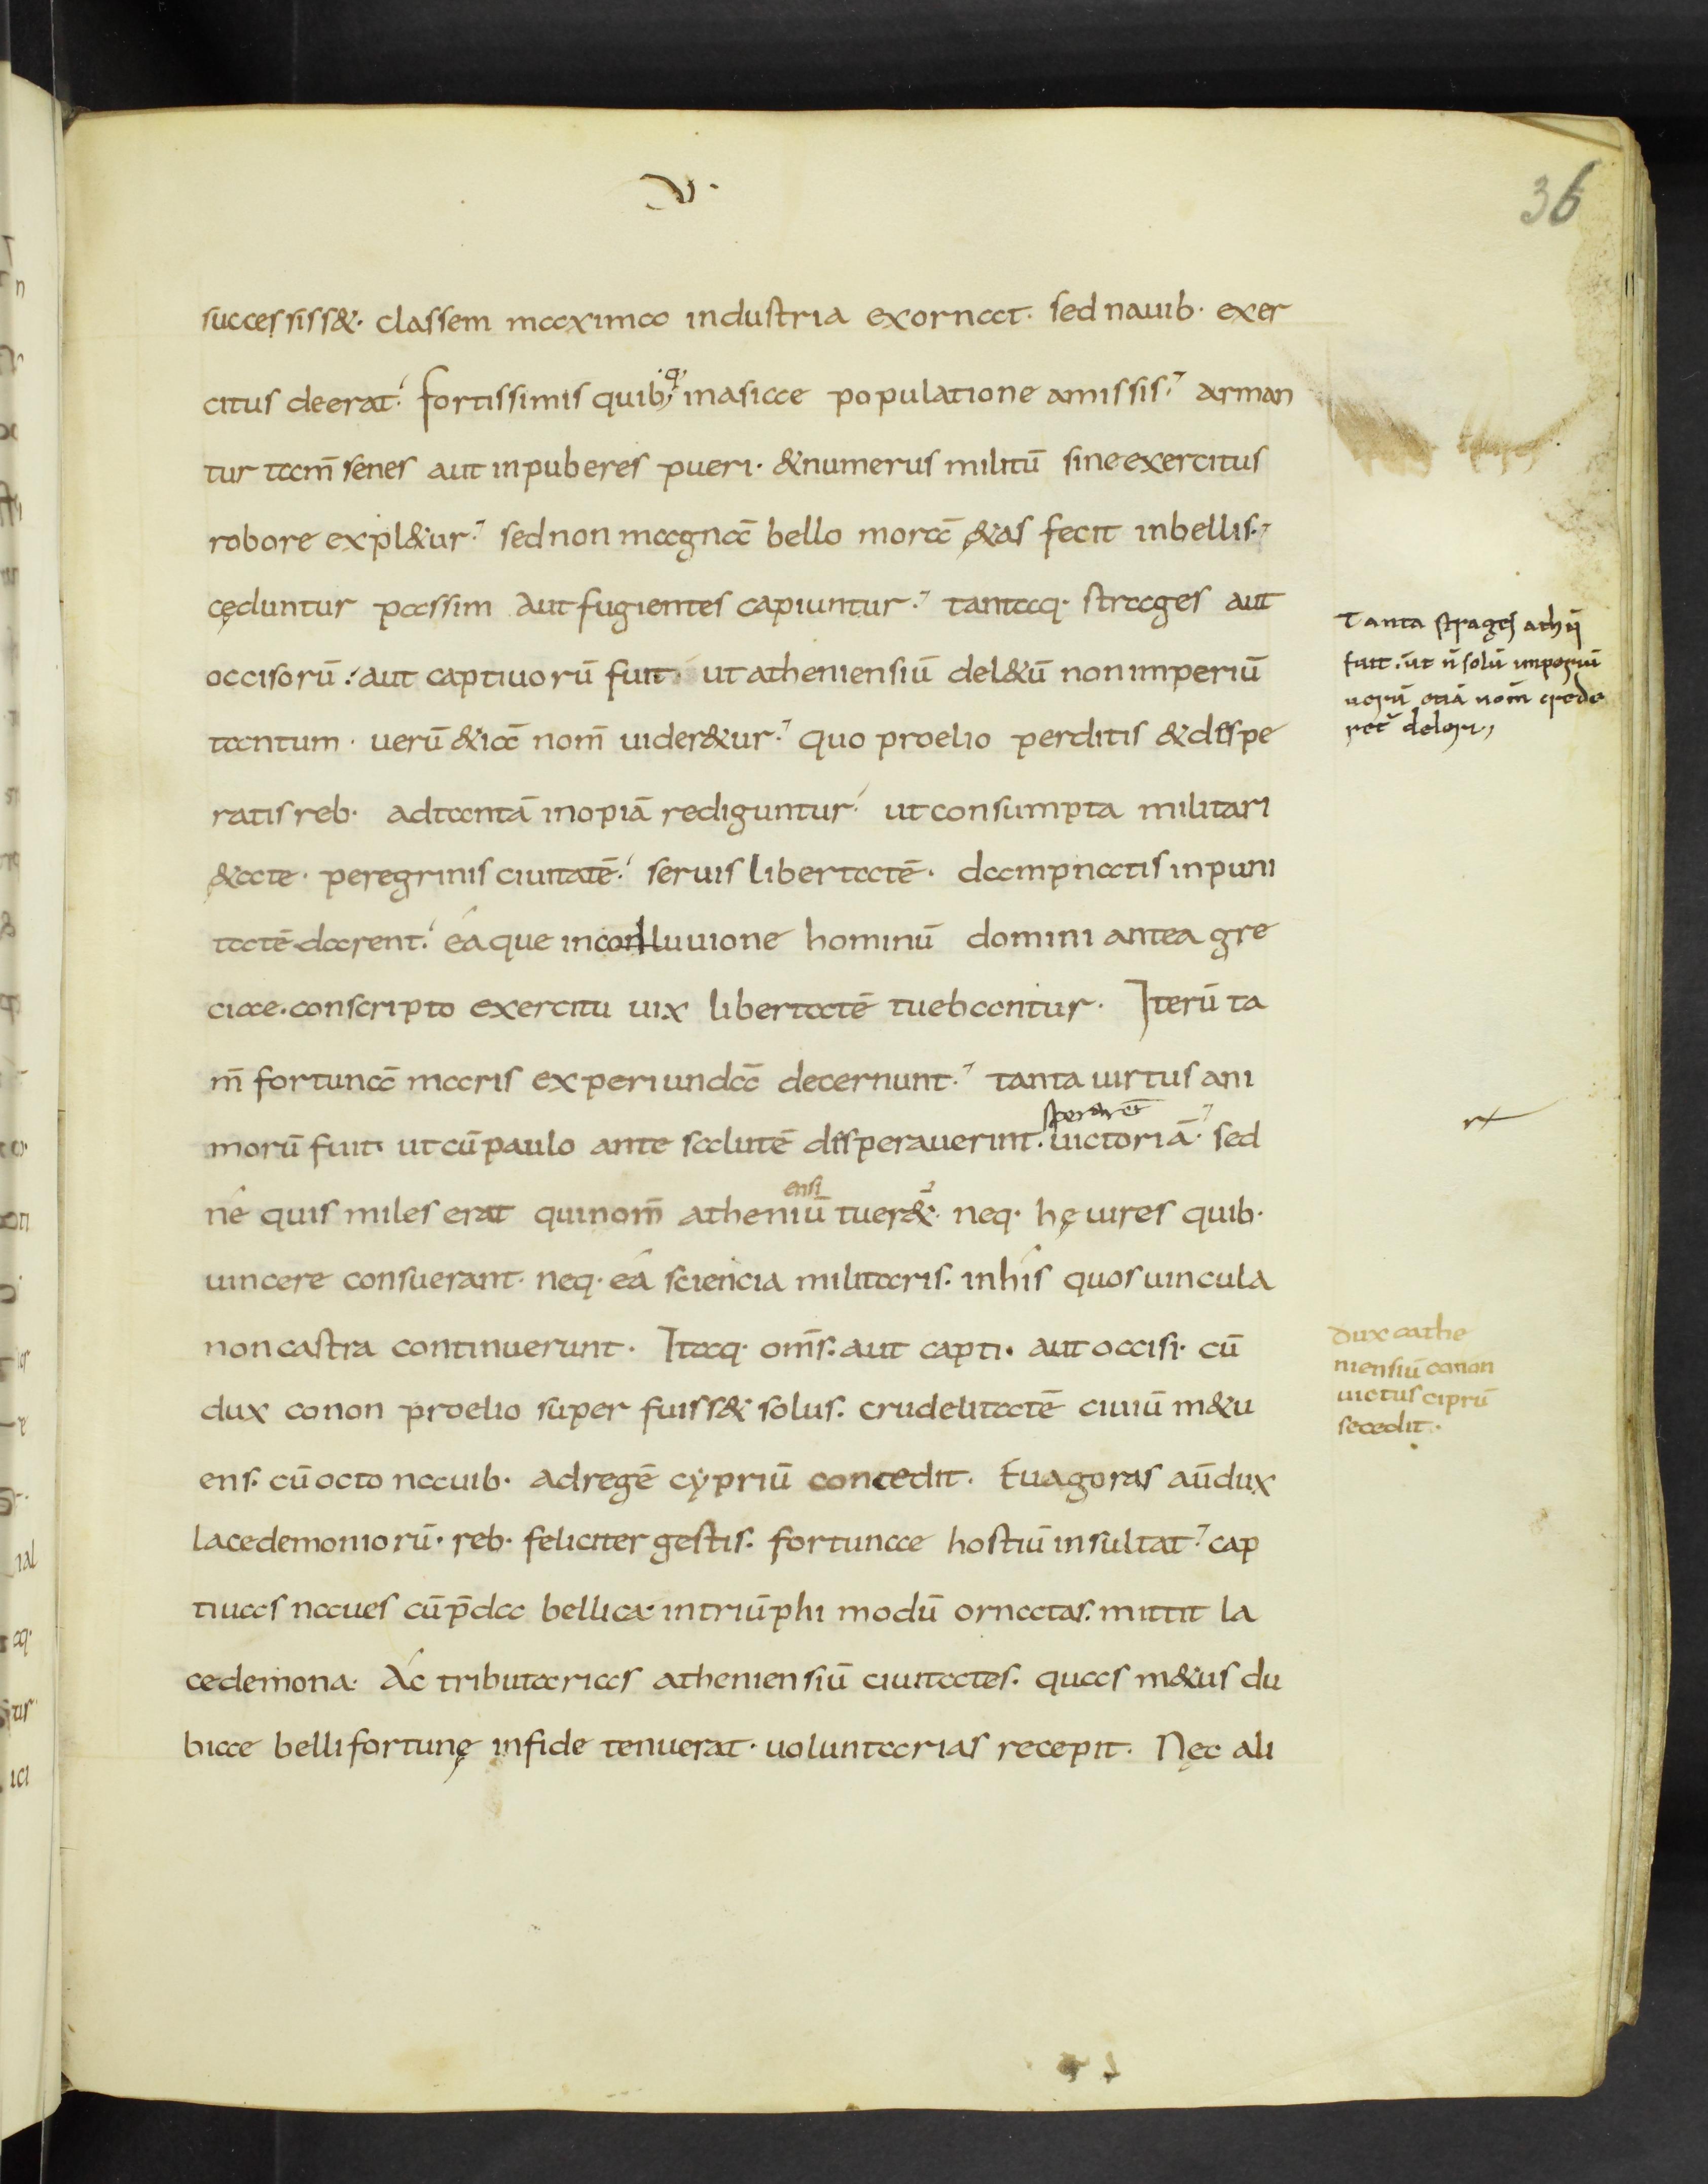 V·
36
successiss&· classem maxima industria exornat· sed nauib· exer
citus deerat· fortissimis quibq; inasiae populatione amissis· arman
tur tam̄ senes aut inpuberes pueri· &numerus militū sine exercitus
robore expl&ur· sed non magnā bello morā &as fecit inbellis·
cęduntur passim aut fugientes capiuntur· tantaq· strages aut
occisorū· aut captiuorū fuit· ut atheniensiū del&ū non imperiū
tantum· uerū &iā nom̄ uider&ur· quo proelio perditis & dispe
ratis reb· ad tantā inopiā rediguntur· ut consumpta militari
&ate· peregrinis ciuitatē· seruis libertatē· dampnatis inpuni
tatē darent· eáque in conluuione hominū domini antea gre
ciae· conscripto exercitu uix libertatē tuebantur· Iterū ta
m̄ fortunā maris experiundā decernunt· tanta uirtus ani
sperarēt
morū fuit· ut cū paulo ante salutē disperauerint· uictoriā· sed
ensi
né quis miles erat qui nom̄ atheniū tuer&· neq· hę uires quib·
uincere consuerant· neq· eá sciencia militaris· in hís quos uincula
non castra continuerunt· Itaq· om̄s· aut capti· aut occisi· cū
dux conon proelio super fuiss& solus· crudelitatē ciuiū m&u
ens· cū octo nauib· ad regē cypriū concedit· Euagoras aū dux
lacedemoniorū· reb· feliciter gestis· fortunae hostiū insultat· cap
tiuas naues cū p̄da bellica· in triūphi modū ornatas· mittit la
cedemona· Ác tributarias atheniensiū ciuitates· quas m&us du
biae belli fortunę in fide tenuerat· uoluntarias recepit· Nęc ali
Tanta strages athīi
fuit· ut n̄ solū imperiū
uerū etiā nom̄ crede
ret' deleri,
dux athe
niensiū conon
uictus ciprū
secedit·